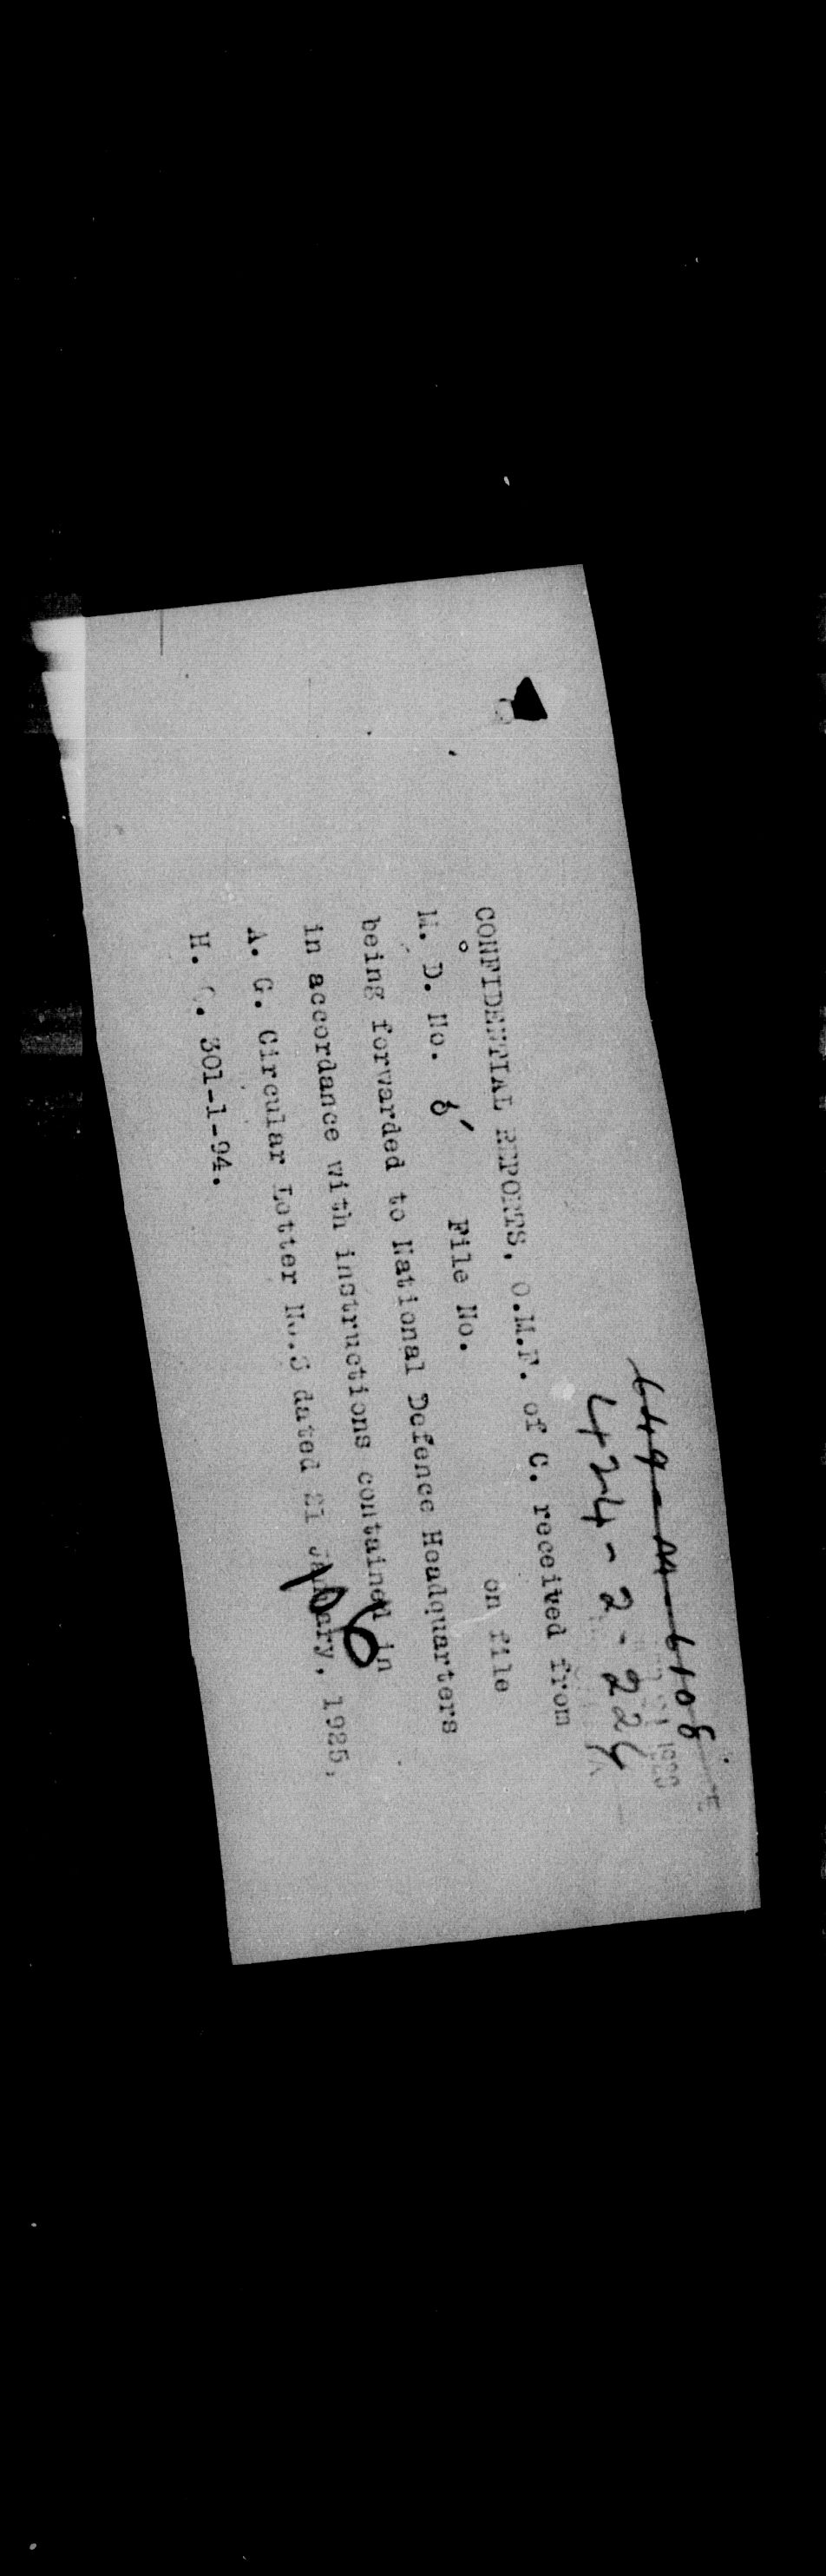 649-M-6108
424-2-224
CONFIDENTIAL REPORTS, O.M.F. of C. received from
M. D. No. 6 File No. on file
being forwarded to National Defence Headquarters
in accordance with instructions contained in
A. G. Circular Letter No. dated 21 January, 1925,
H. 301-1-94.